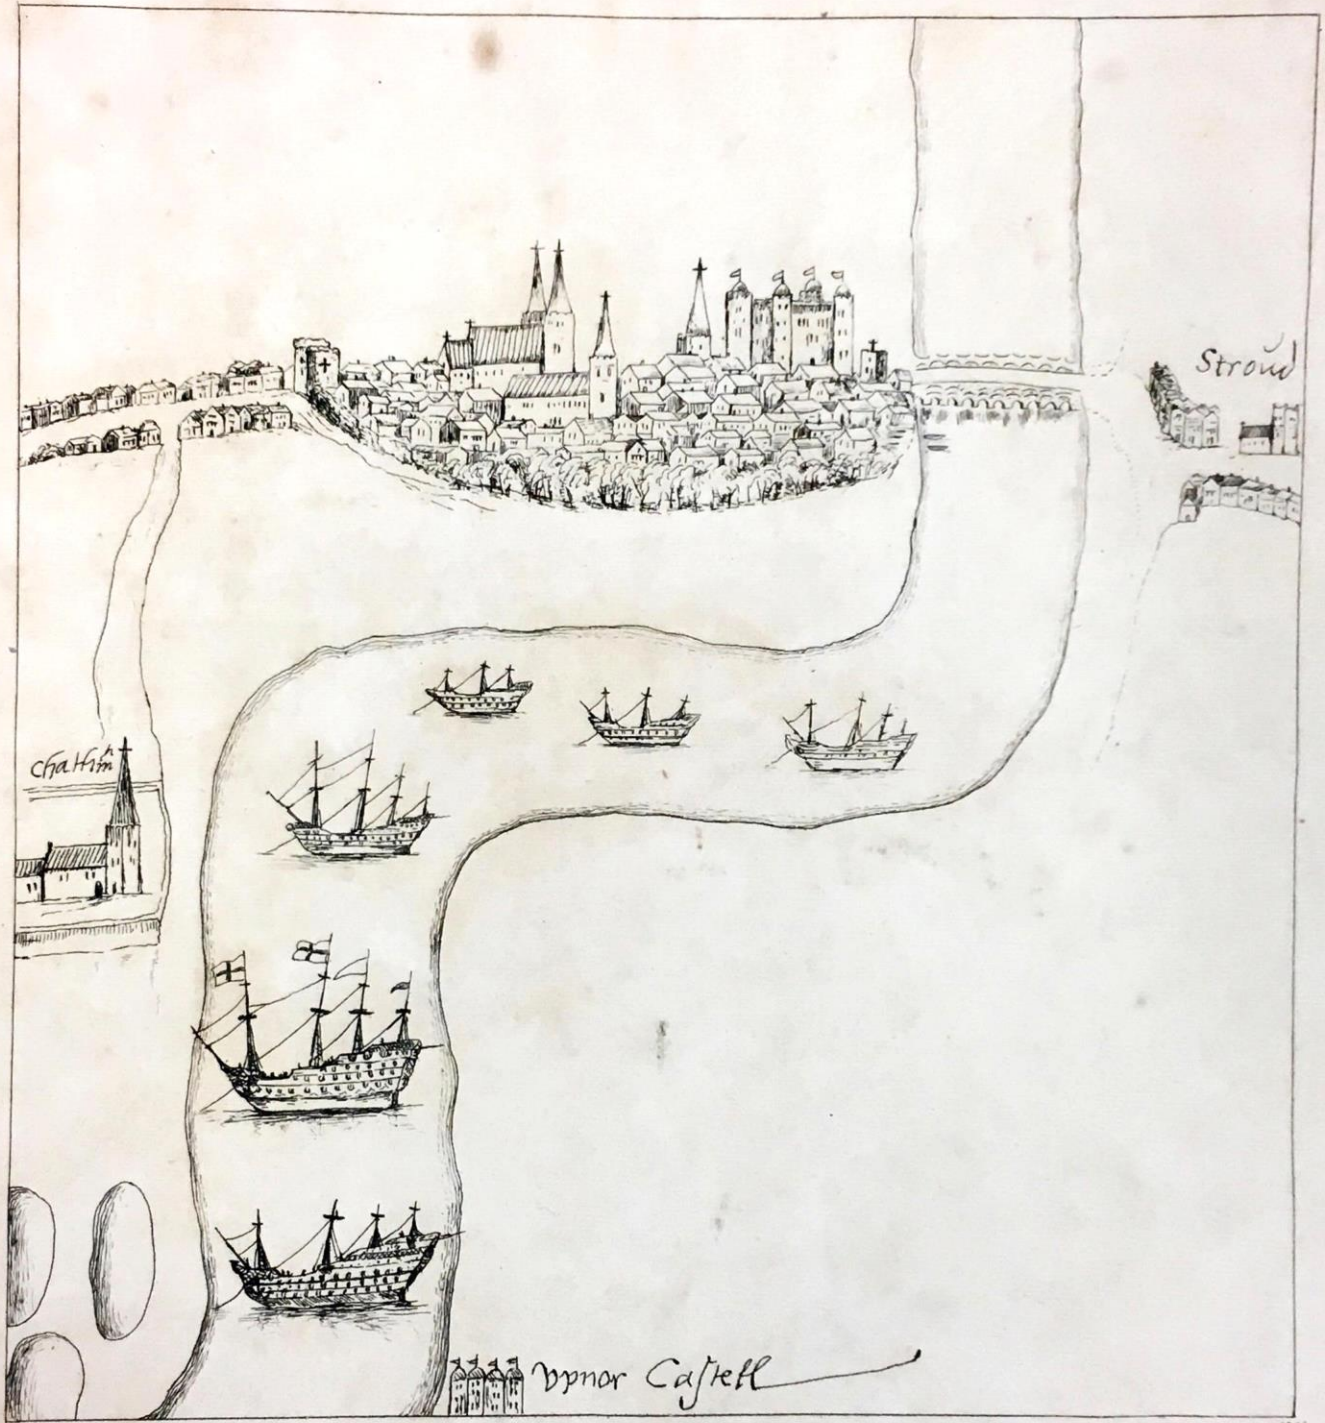 Stroud
Chattham
Vpnor Castell